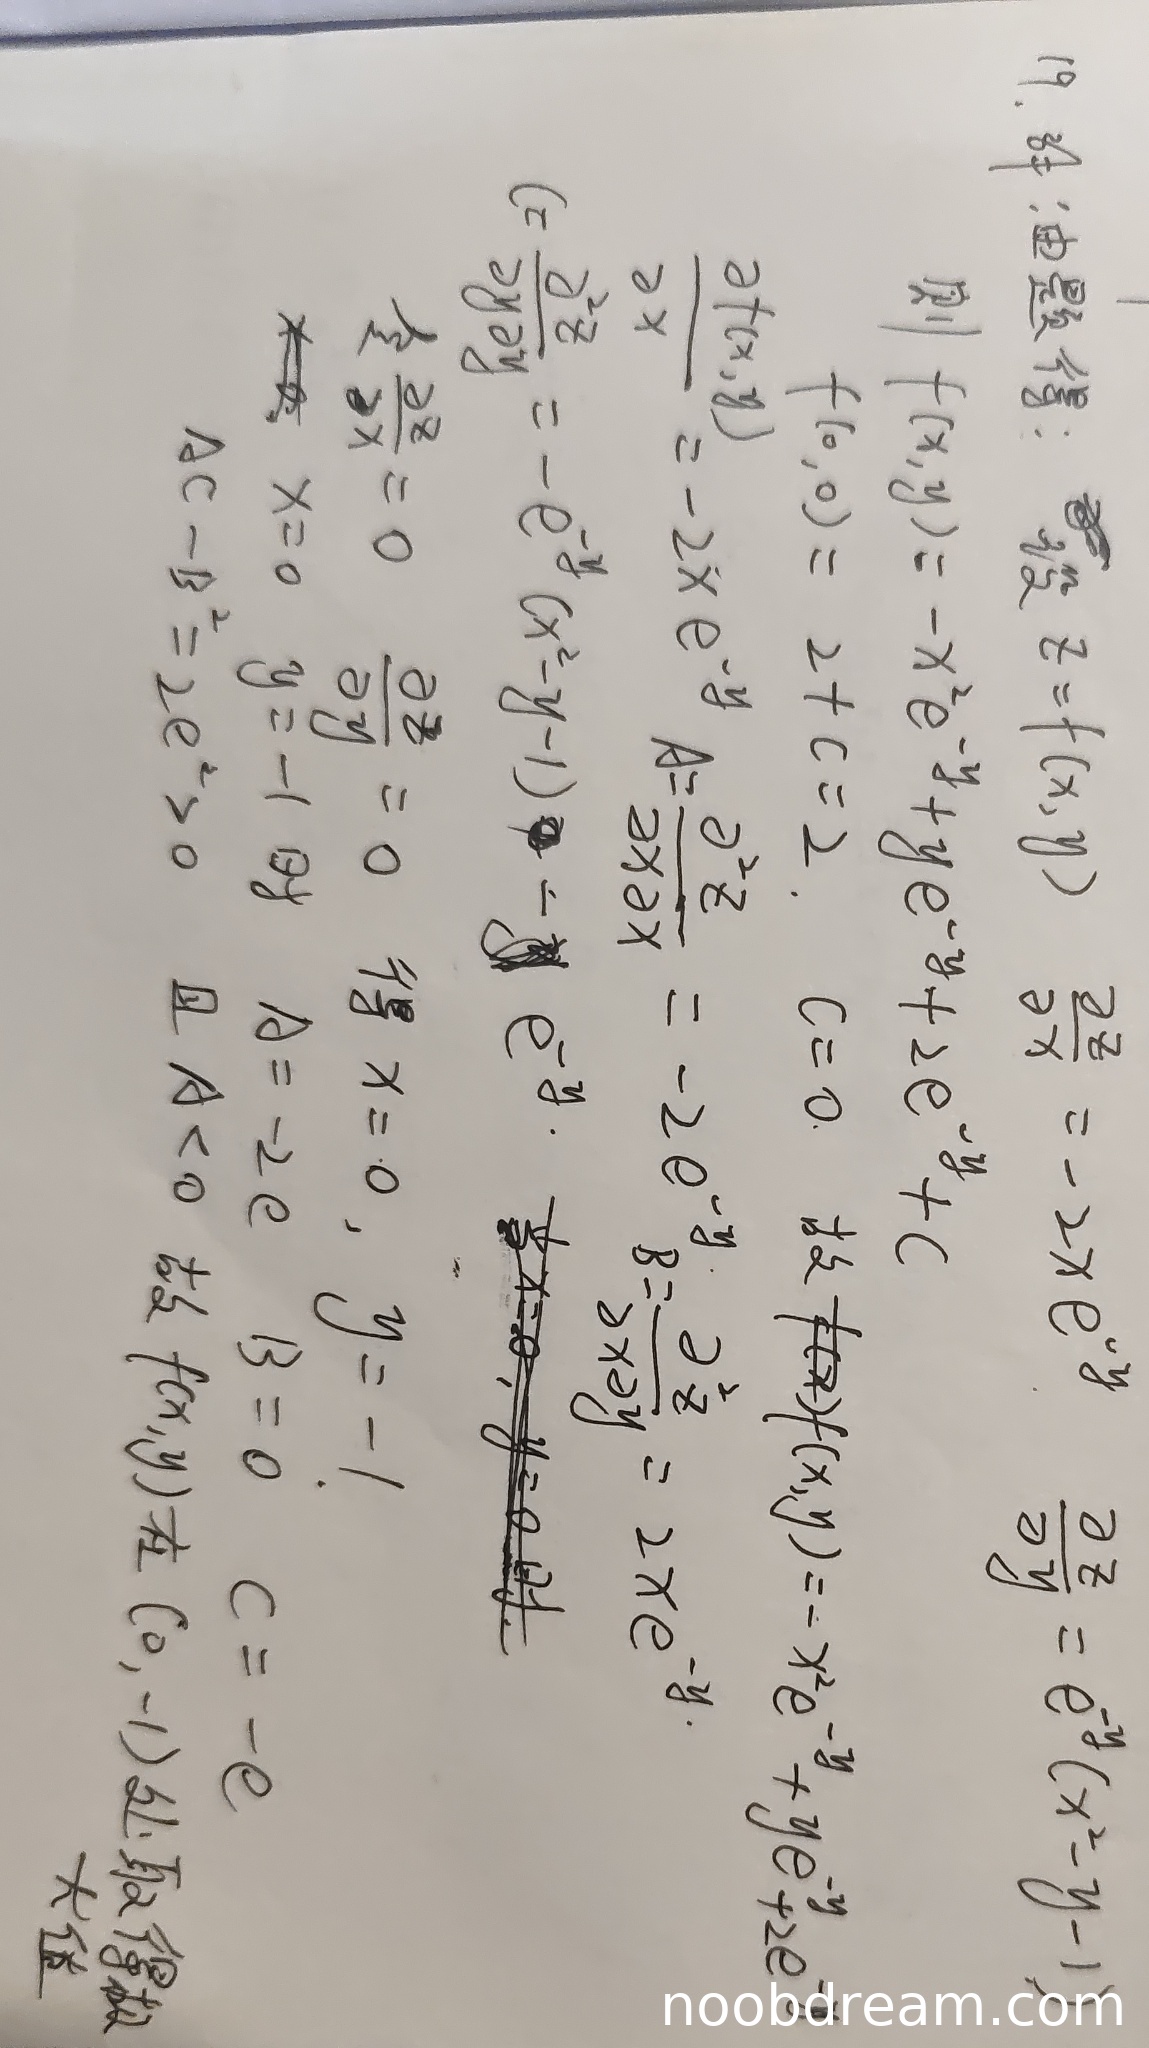 19. 解:由题得: 设 z=f(x,y) ∂z/∂x = -2xe^-y. ∂z/∂y = e^-y(x²-y-1)
则 f(x,y) = -x²e^-y + ye^-y + 2e^-y + C
f(0,0) = 2+C=2. C=0. 故 f(x,y) = -x²e^-y + ye^-y + 2e^-y
∂f(x,y)/∂x = -2xe^-y A=∂²z/∂x∂x = -2e^-y. B=∂²z/∂x∂y = 2xe^-y.
C=∂²z/∂y∂y = -e^-y(x²-y-1) - e^-y.
令 ∂z/∂x = 0 ∂z/∂y = 0 得 x=0, y=-1.
x=0 y=-1 时 A=-2e B=0 C=-e
AC-B²=2e²>0 且 A<0 故 f(x,y)在(0,-1)处取得极
大值
noobdream.com